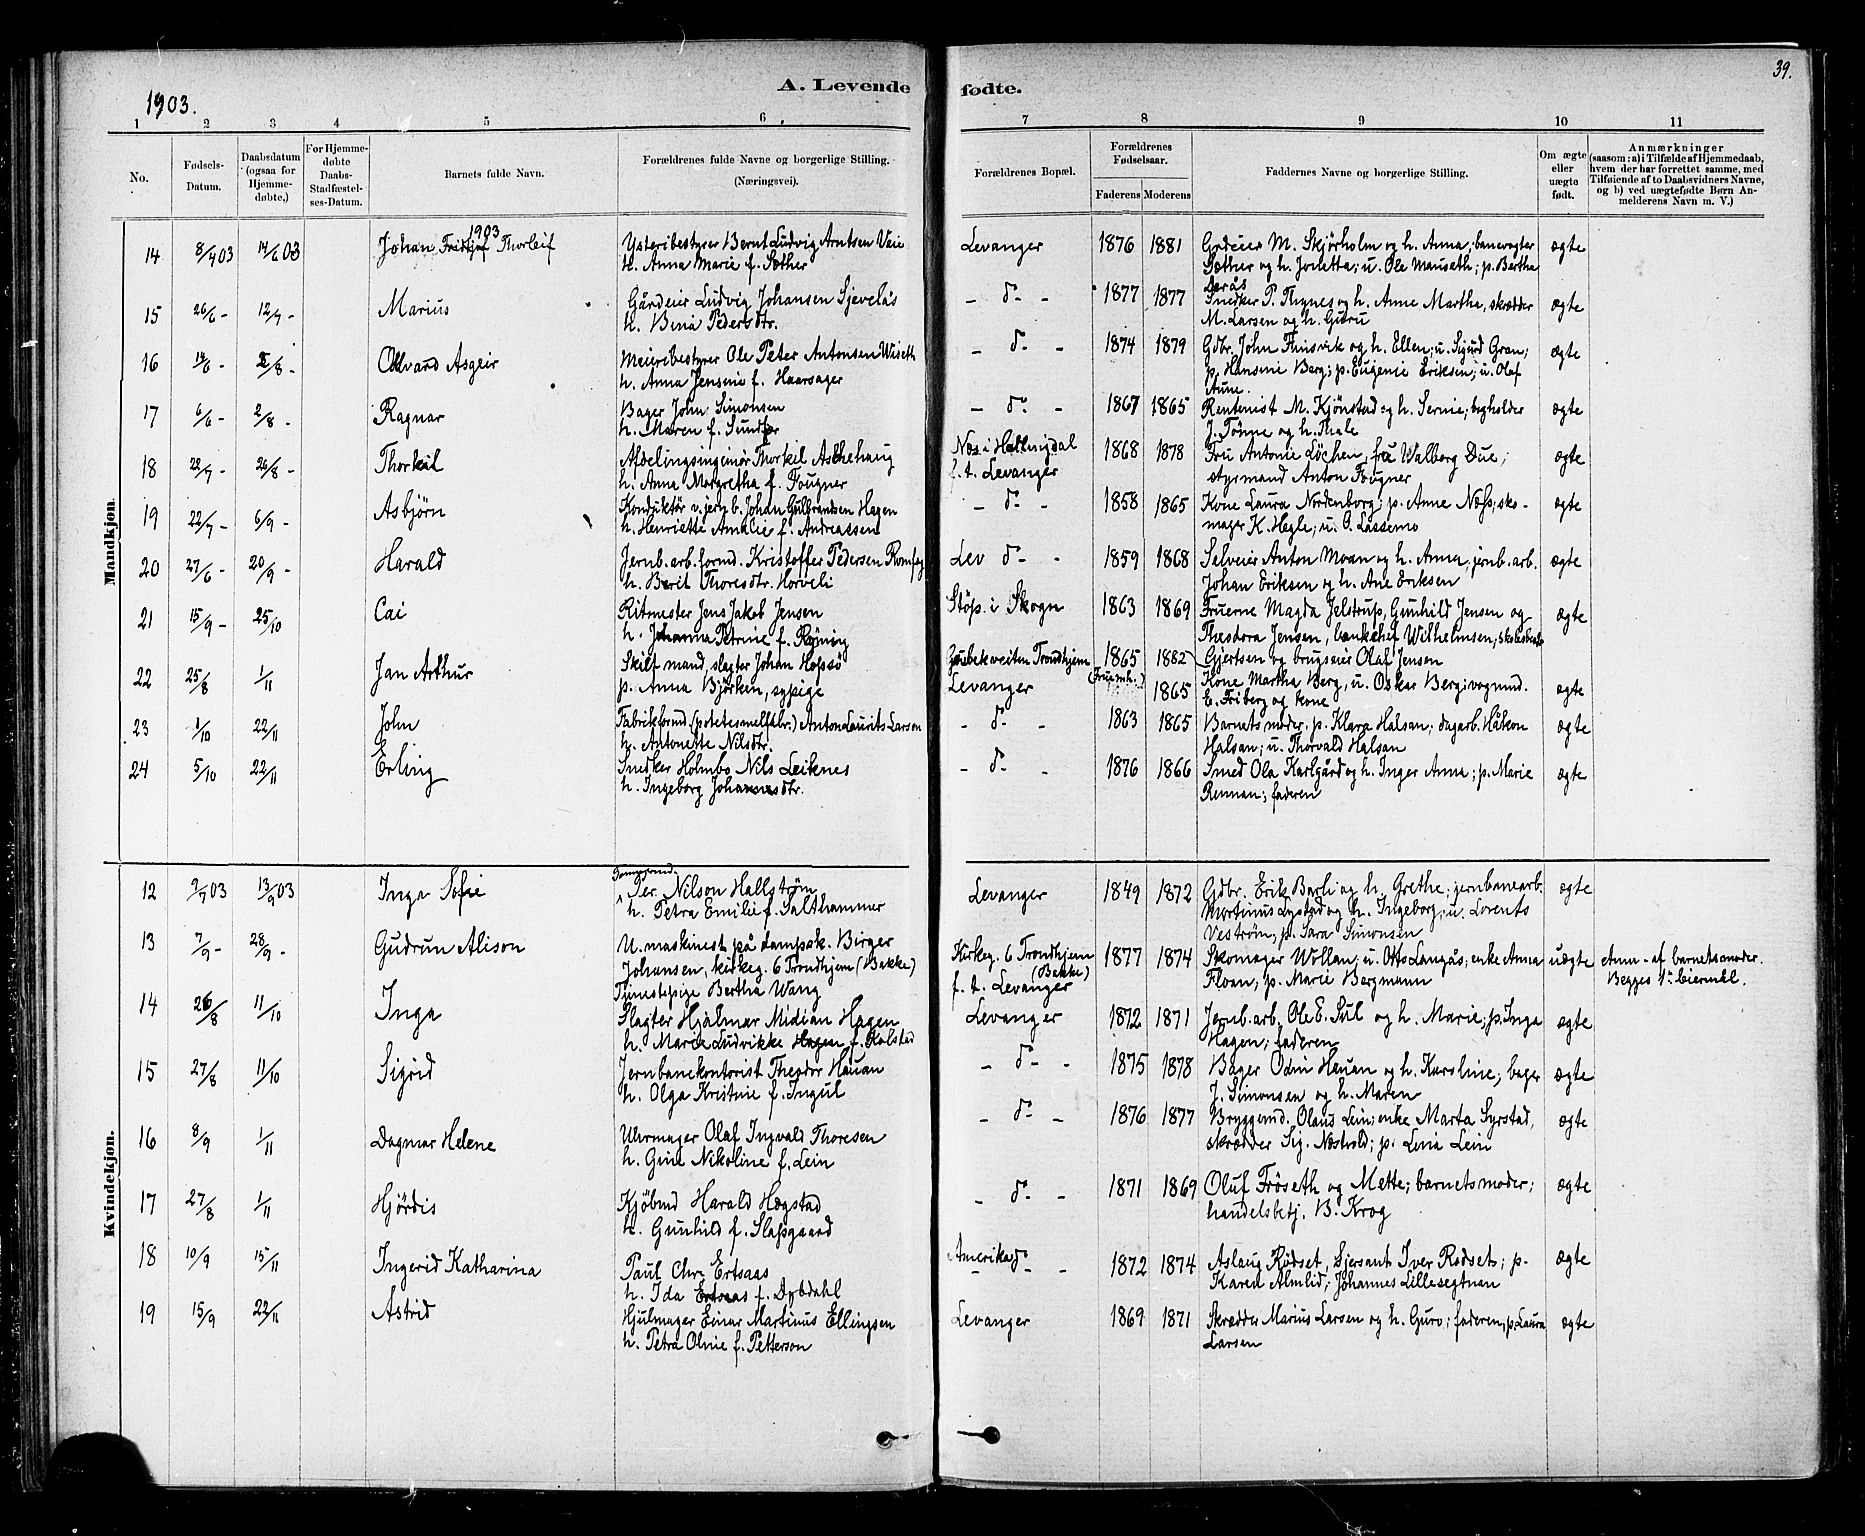 39.
1903.
A. Levende fødte.
1 2 3 4 5 6 7 8 9 10 11
No.
Fødsels-Datum.
Daabsdatum (ogsaa for Hjemme-døbte,)
For Hjemme-døbte Daabs-Stadfæstel-ses-Datum.
Barnets fulde Navn.
Forældrenes fulde Navne og borgerlige Stilling. (Næringsvei).
Forældrenes Bopæl.
Forældrenes Fødselsaar.
Faderens Moderens
Faddernes Navne og borgerlige Stilling.
Om ægte eller uægte født.
Anmærkninger (saasom: a) i Tilfælde af Hjemmedaab, hvem der har forrettet samme, med Tilføiende af to Daabsvidners Navne, og b) ved uægtefødte Børn An-melderens Navn m. V.)
Mandkjøn
1903
14 8/4 03 14/6 03 Johan Fridtjof Thorleif Ysteribestyrer Bernt Ludvig Arntsen Vaie Levanger 1876 1881 Grdeier M. Skjørholm og h. Anna; banevogter ægte
h. Anna Marie f. Sæther Sæther og h. Joletta; u. Ole Mauseth; p. Bertha
Derås
15 26/6 - 12/7 - Marius Gårdeier Ludvig Johansen Sjevelås - do - 1877 1877 Snedker P. Thynes og h. Anne Martha, skrædder ægte
h. Bina Pedersdtr. M. Larsen og h. Guru
16 14/6 - 2/8 - Oddvard Asgeir Meieribestyrer Ole Peter Antonsen Wiseth - do - 1874 1879 Gdbr. John Finsvik og h. Ellen; u. Sigurd Gran; ægte
h. Anna Jensine f. Haarsager p. Hansine Berg; p. Eugenie Eriksen; u. Olaf
Aune.
17 6/6 - 2/8 - Ragnar Bager John Simonsen - do - 1867 1865 Rentenist M. Kjønstad og h. Serine; bogholder ægte
h. Maren f. Sundfær J. Tønne og h. Thale
18 28/7 - 26/8 - Thorkil Afdelingsingeniør Thorkil Aschehaug Næs i Hallingdal 1868 1878 Fru Antonie Løchen, fru Walborg Due; ægte
h. Anna Margretha f. Fougner f. t. Levanger styrmand Anton Fougner
19 22/7 - 6/9 - Asbjørn Konduktør v. jernb. Johan Gulbrandsen Hagen - do - 1858 1865 Kone Laura Nordenborg; p. Anne Næss; sko- ægte
h. Henriette Amalie f. Andreassen mager K. Hegle; u. O. Lassemo
20 27/6 - 20/9 - Harald Jernb. arb. formd. Kristoffer Pedersen Lev do - 1859 1868 Selveier Anton Moan og h. Anna; jernb. arb. ægte
h. Berit Thoresdtr. Horveli Johan Eriksen og h. Ane Eriksen
21 15/9 - 25/10 Cai Ritmester Jens Jakob Jensen Støp. i Skogn 1863 1869 Fruerne Magda Jelstrup, Gunhild Jensen og ægte
h. Johanna Petrine f. Røning Theodora Jensen, bankchef Wilhelmsen;
22 25/8 1/11 Jan Arthur Skilt mand, slagter Johan Hopsø Trondhjem 1865 1882 Gjertsen og brugseier Olaf Jensen
p. Anna Bjørken, sypige Levanger (Fruemh.) 1865 Kone Martha Berg, u. Oskar Berg; vognmd. ægte
E. Friberg og kone
23 1/10 22/11 John Fabrikformd. (potetesmelfabr.) Anton Laurits Larsen - do - 1863 1865 Barnets moder, p. Klara Halsan; dagarb. Håkon ægte
h. Antonette Nilsdtr. Halsan; u. Thorvald Halsan
24 5/10 22/11 Erling Snedker Holmbo Nils Leiknes - do - 1876 1866 Smed Ola Karlgård og h. Inger Anna; p. Marie ægte
h. Ingeborg Johannesdtr. Rennan; faderen
Kvindekjøn.
12 9/7 03 13/9 03 Inga Sofie Per. Nilson Hallstrøm Levanger 1849 1872 Gdbr. Erik Borli og h. Grethe; jernbanearb. ægte
h. Petra Emilie f. Salthammer Martinus Lystad og h. Ingeborg; u. Lorents
Vestrøm, p. Sara Simonsen
13 7/9 - 28/9 - Gudrun Alison U. maskinest på dampsk. Birger Kirkeg. 6 Trondhjem 1877 1874 Skomager Wollan; u. Otto Langås; enke Anna uægte Anm - af barnets moder.
Johansen, kirkeg. 6 Trondhjem (Bakke) (Bakke) Floan; p. Marie Bergmann Begges 1ste leiermål.
Tjenestepige Bertha Wang f. t. Levanger
14 26/8 11/10 Inga Slagter Hjalmar Midian Hagen Levanger 1872 1871 Jernb. arb. Ole E. Sul og h. Marie; p. Inga ægte
h. Marie Ludvikke Hagen f. Kolstad Hagen; faderen
15 27/8 11/10 Sigrid Jernbanekontorist Theodor Hauan - do - 1875 1878 Bager Odin Hauan og h. Karoline; bager ægte
h. Olga Kristine f. Ingul J. Simonsen og h. Maren
16 8/9 1/11 Dagmar Helene Uhrmager Olaf Ingvald Thoresen - do - 1876 1877 Bryggemd. Olaus Lein; enke Marta Syrstad, ægte
h. Gine Nikoline f. Lein skrædder Sig. Nestvold; p. Lina Lein
17 27/8 1/11 Hjørdis Kjøbmd Harald Hegstad - do - 1871 1869 Oluf Frøseth og Mette; barnets moder; ægte
h. Gunhild f. Slapgaard handelsbetj. B. Krog
18 10/9 15/11 Ingerid Katharina Paul Chr. Ertsaas Amerika do - 1872 1874 Aslaug Rødset, Sjersant Iver Rødset; p. ægte
h. Ida Ertsaas f. Dybdahl Karen Almlid; Johannes Lillesegtnan
19 15/9 22/11 Astrid Hjulmager Einar Martinus Ellingsen Levanger 1869 1871 Skrædder Marius Larsen og h. Guro; faderen, p. Laura ægte
h. Petra Oline f. Petterson Larsen